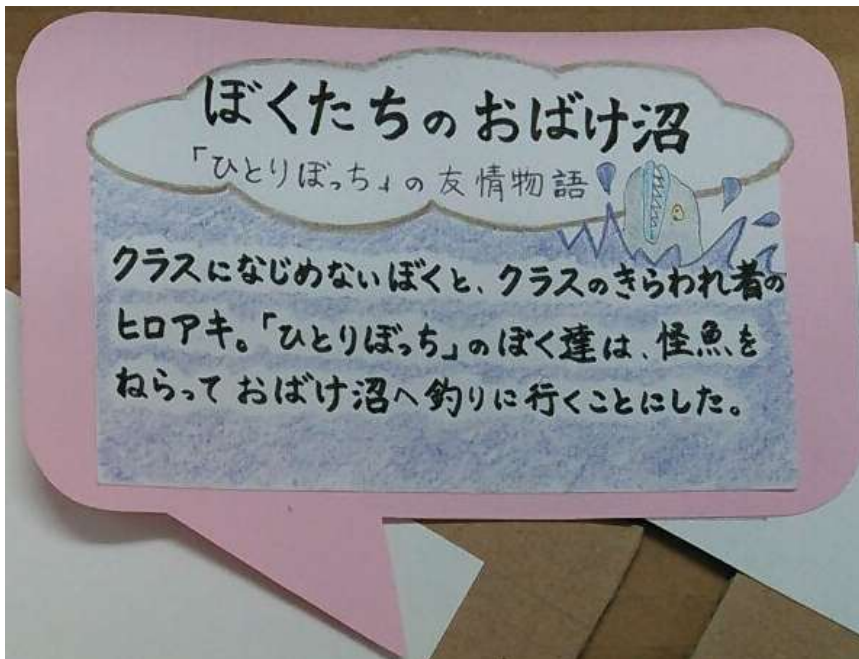 ぼくたちのおばけ沼
「ひとりぼっち」の友情物語
クラスになじめないぼくと、クラスのきらわれ者の
ヒロアキ。「ひとりぼっち」のぼく達は、怪魚を
ねらっておばけ沼へ釣りに行くことにした。